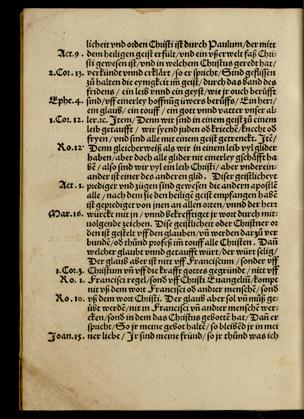 licheit vnd orden Christi ist durch Paulum/ der mitt
Act. 9. dem heiligen geist erfült/ vnd ein vßerwelt faß Chri
sti gewesen ist/ vnd in welchem Christus geredt hat/
2. Cor. 13. verkündt vnnd erklärt/ so er spricht/ Sind geflissen
zů halten die eynigkeit im geist/ durch das band des
fridens/ ein leib vnnd ein geyst/ wie jr ouch berüfft
Ephe. 4. sind/ vff einerley hoffnüg üwers berüffs/ Ein herr/
ein glaub/ ein touff/ ein gott vnd vatter vnser al
1. Cor. 12. ler. ꝛc. Item/ Denn wir sind in einem geist zů einem
leib getaufft/ wir syend juden od kriechē/ knecht od
fryen/ vnd sind alle mit einem geist getrenckt. Itē/
Ro. 12. Denn gleicherweiß als wir in einem leib vyl glider
haben/ aber doch alle glider nit einerley gschäfft ha
bē/ also sind wir vyl ein leib Christi/ aber vnder ein/
ander ist einer des anderen glid. Diser geistlicheyt
Act. 1. prediger vnd zügen sind gewesen die andern apostlē
alle/ nach dem sie den heiligē geist empfangen habē
ist geprediget von jnen an allen orten/ vnnd der herr
Mar. 16. würckt mit jn/ vnnd bekrefftiget jr wort durch mitt
uolgende zeichen. Dise geistlicheit oder Christener or
den ist gestelt vff den glauben/ vñ werden darzů ver
bundē/ od thůnd profeß im touff alle Christen. Dañ
welcher glaubt vnnd getaufft würt/ der würt selig/
Der glaub aber ist nitt vff Franciscum/ sonder vff
1. Cor. 3. Christum vñ vff die krafft gottes gegründt/ nitt vff
Ro. 1. Francisci regel/ sond vff Christi Euangeliū/ kompt
nit vß dem wort Francisci od andrer menschē/ sond
Ro. 10. vß dem wort Christi. Der glaub aber sol vñ můß ge
übt werdē/ nit in Francisci vñ andrer menschē wer/
cken/ sond in dem das Christus gebottē hat/ Dañ er
spricht/ So jr meine gebot halte/ so bleibēd jr in mei
Joan. 15. ner liebe/ Jr sind meine fründ/ so jr thůnd was ich